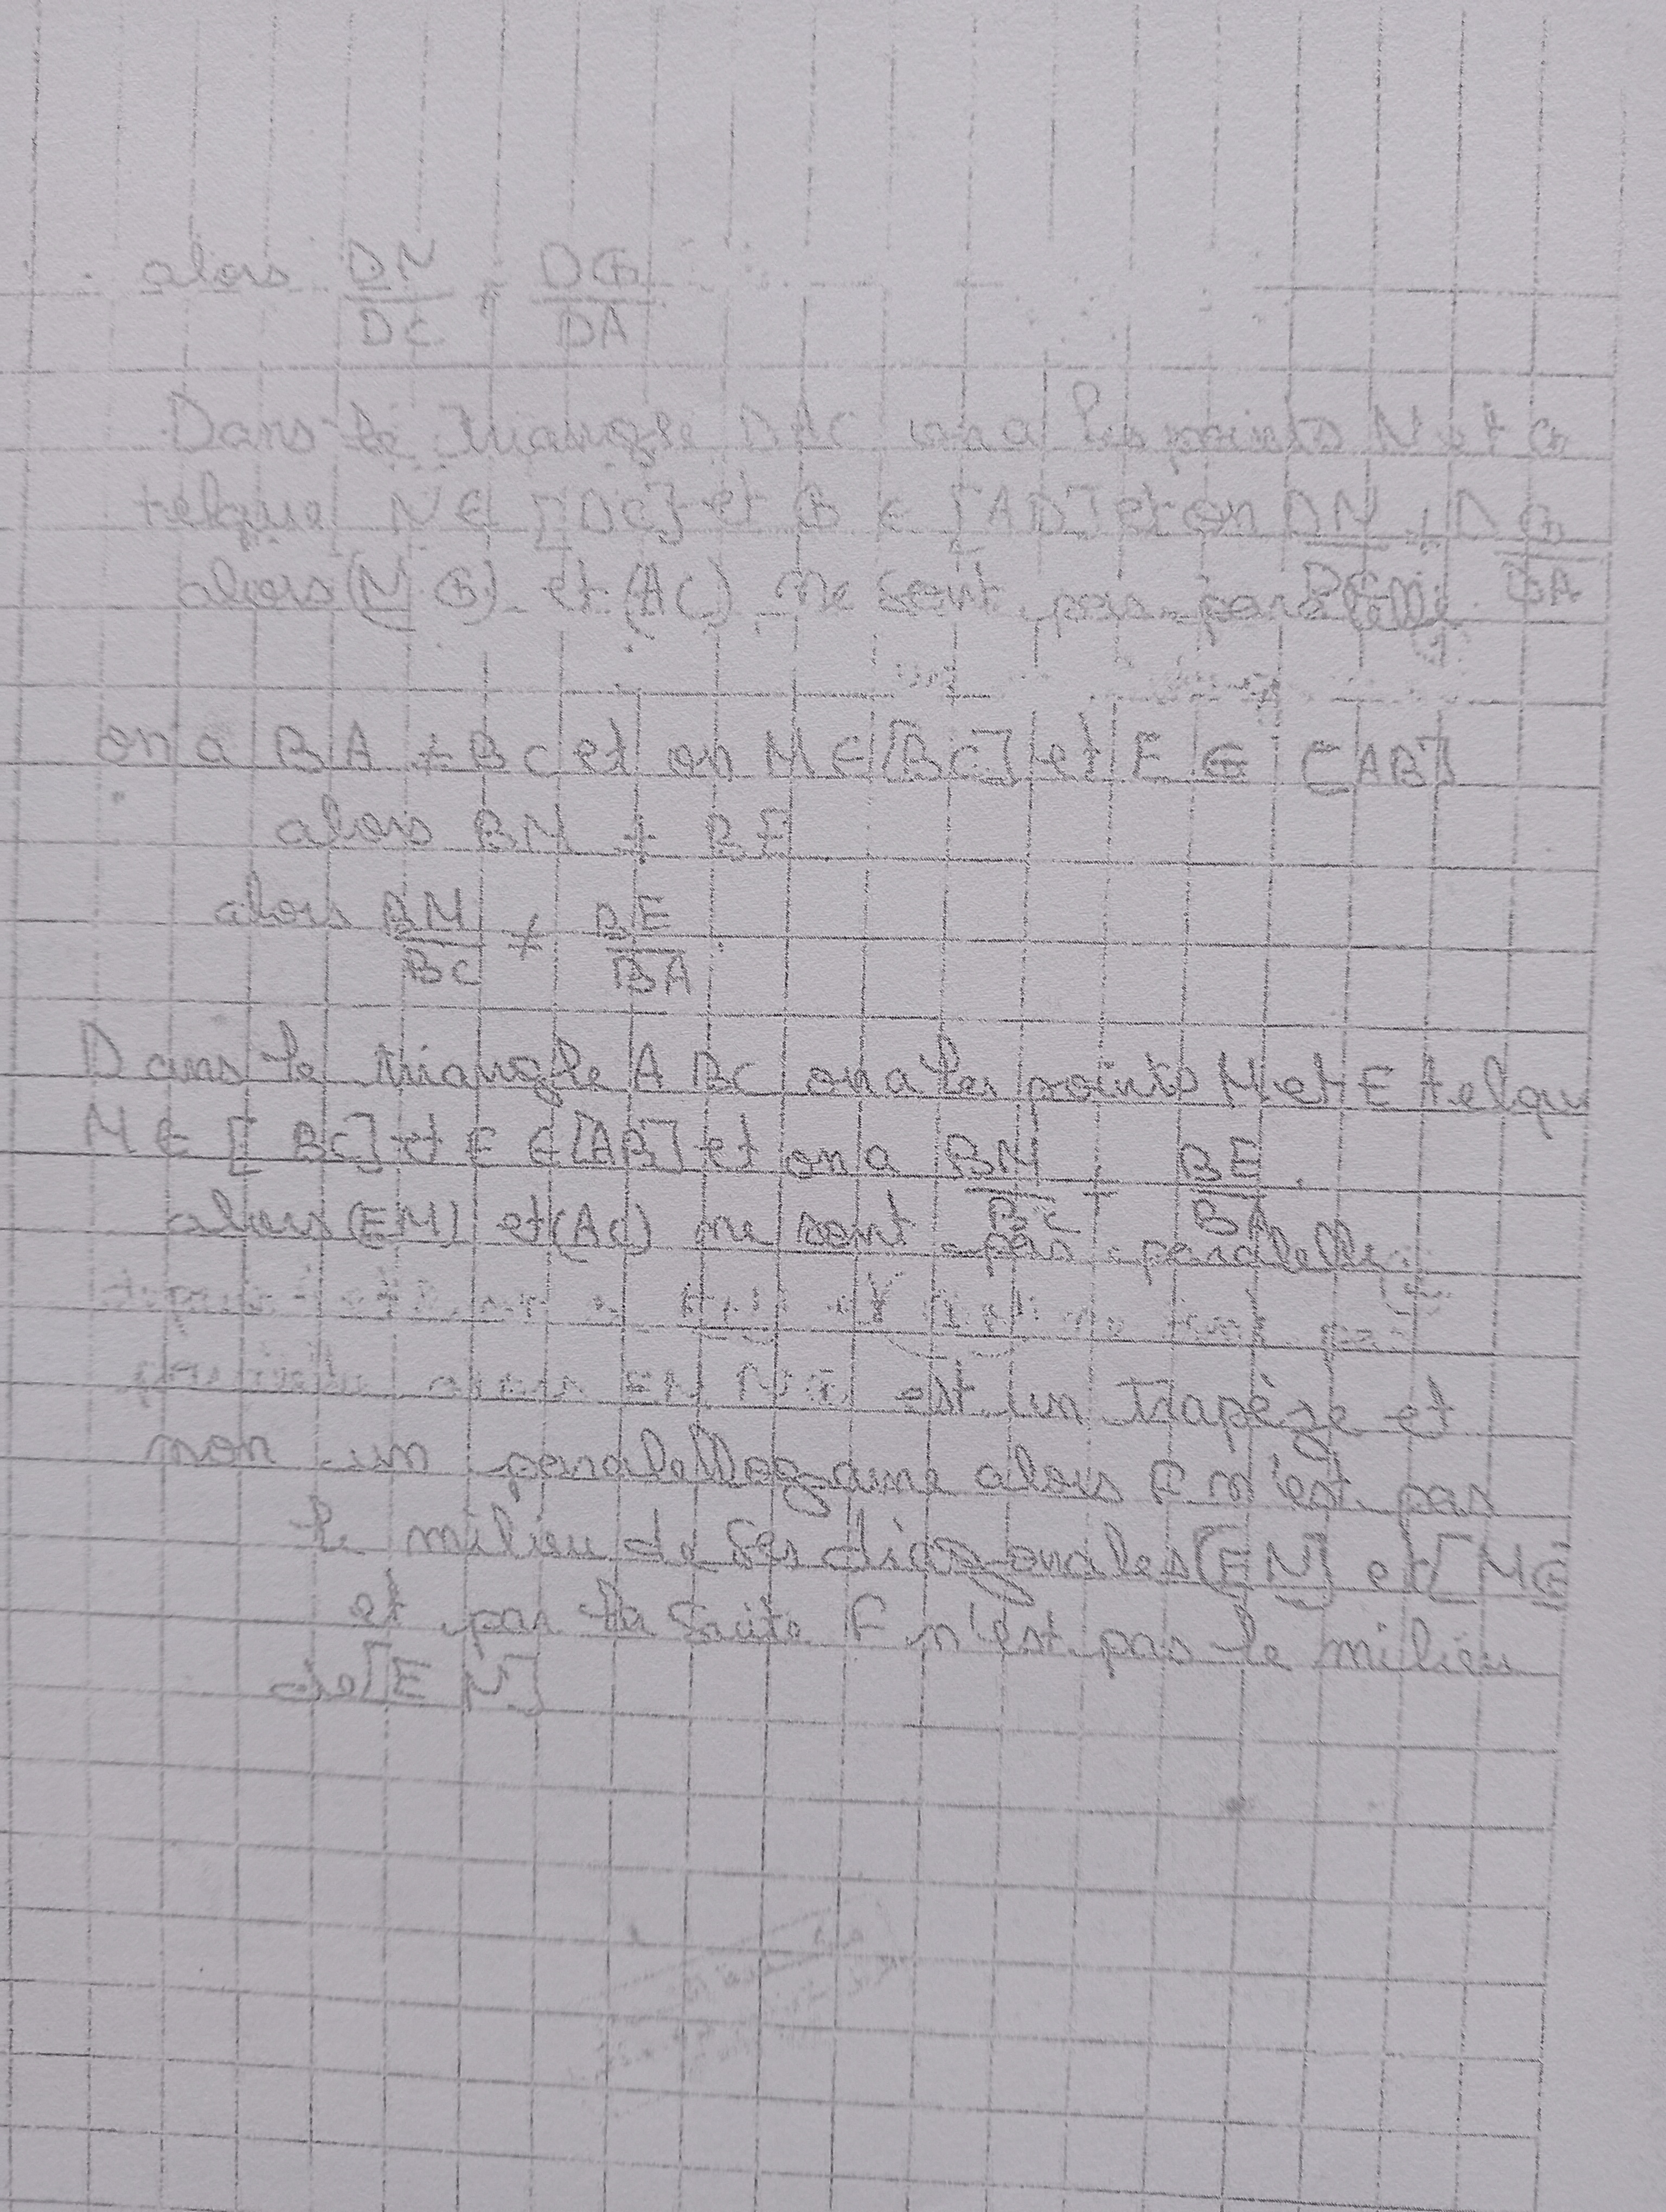 alors DN/DC ≠ DG/DA
Dans le triangle DAC on a les points N et G
telque N ∈ [DC] et G ∈ [AD] et on DN/DC ≠ DG/DA
alors (NG) et (AC) ne sont pas paralelle
on a BA ≠ BC et on M ∈ [BC] et E ∈ [AB]
alors BM ≠ BE
alors BM/BC ≠ BE/BA.
Dans le triangle ABC on a les points M et E telqu
M ∈ [BC] et E ∈ [AB] et on a BM/BC ≠ BE/BA.
alors (EM) et (AC) ne sont pas paralelle.
et
EM NG est un trapéze et
non un paralellograme alors F n'est pas
le milieu de ses diagonales [EN] et [MG
et par la suite F n'est pas le milieu
de [EN]